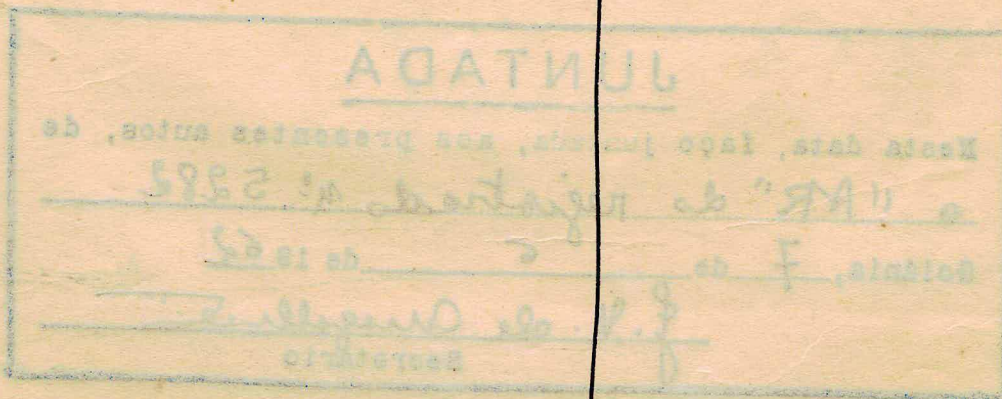 JUNTADA
Nesta data, faço juntada, aos presentes autos, de
o "AR" do registrado Nº 5282
Goiânia, 7 de 6 de 1962
Secretário